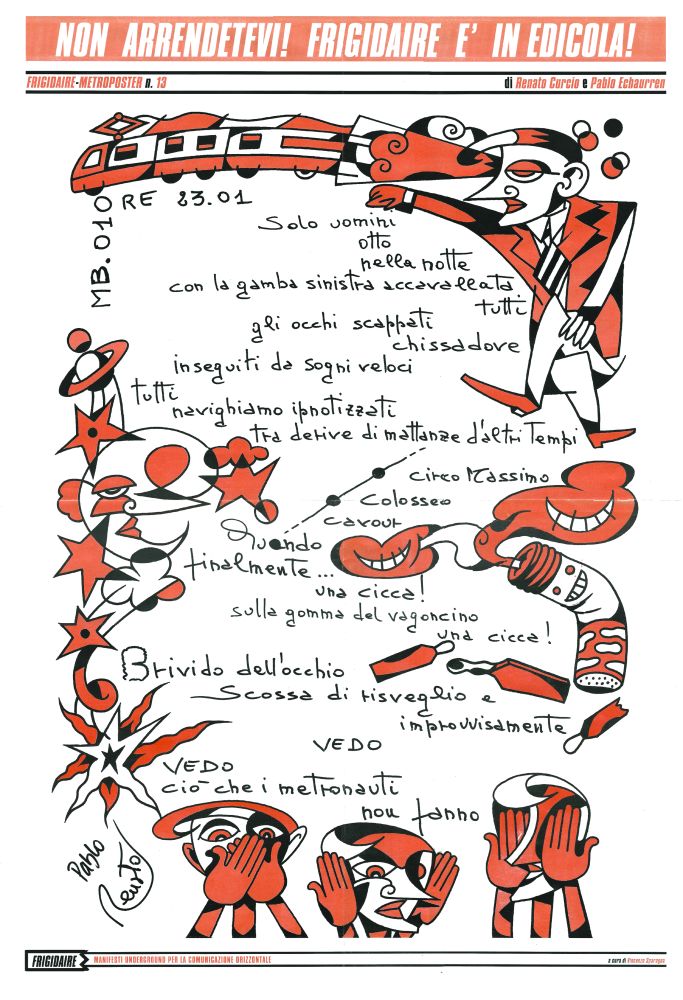 NON ARRENDETEVI! FRIGIDAIRE E' IN EDICOLA!
FRIGIDAIRE-METROPOSTER n. 13
di Renato Curcio e Pablo Echaurren
MB.010
ORE 23.01
Solo uomini
otto
nella notte
con la gamba sinistra accavallata.
tutti
gli occhi scappati
chissadove
inseguiti da sogni veloci
tutti
navighiamo ipnotizzati
tra derive di mattanze d'altri tempi
Circo Massimo
Colosseo
Cavour
Quando
finalmente...
una cicca!
sulla gomma del vagoncino
una cicca!
Brivido dell'occhio
Scossa di risveglio e
improvvisamente
VEDO
VEDO
ciò che i metronauti
non fanno
Pablo
Renato
FRIGIDAIRE
MANIFESTI UNDERGROUND PER LA COMUNICAZIONE ORIZZONTALE
a cura di Vincenzo Sparagna